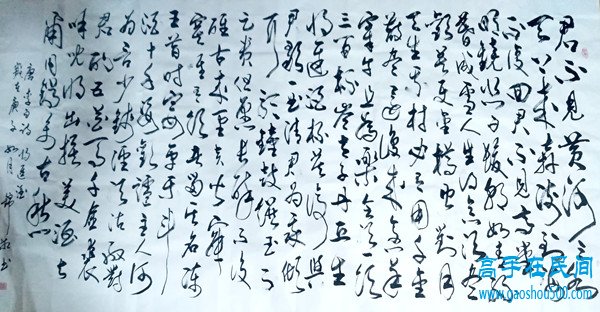 君不见黄河之水
天上来奔流到海
不復回君不见高堂
明镜悲白髮朝如青丝
暮成雪人生得意须尽
歡莫使金樽空對月
天生我材必有用千金
散尽还復来烹羊
宰牛且為樂会須一飲
三百杯岑夫子丹丘生
将進酒杯莫停與
君歌一曲請君為我傾
耳聽鐘鼓饌玉不
足貴但願長醉不復
醒古来聖賢皆寂
寞惟有飲者留其名陳
王昔时宴平樂斗
酒十千恣歡謔主人何
為言少錢徑須沽取對
君酌五花馬千金裘
呼児将出換美酒與
爾同銷萬古愁
唐李白诗将進酒
歲在庚子如月 书
高手在民间
www.gaoshou500.com